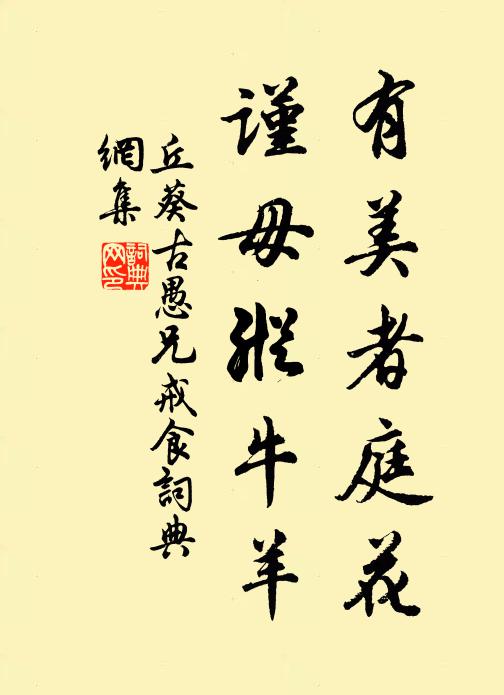 有美者庭花
謹毋縱牛羊
丘葵古愚兄戒食詞典
網集
詞典网印